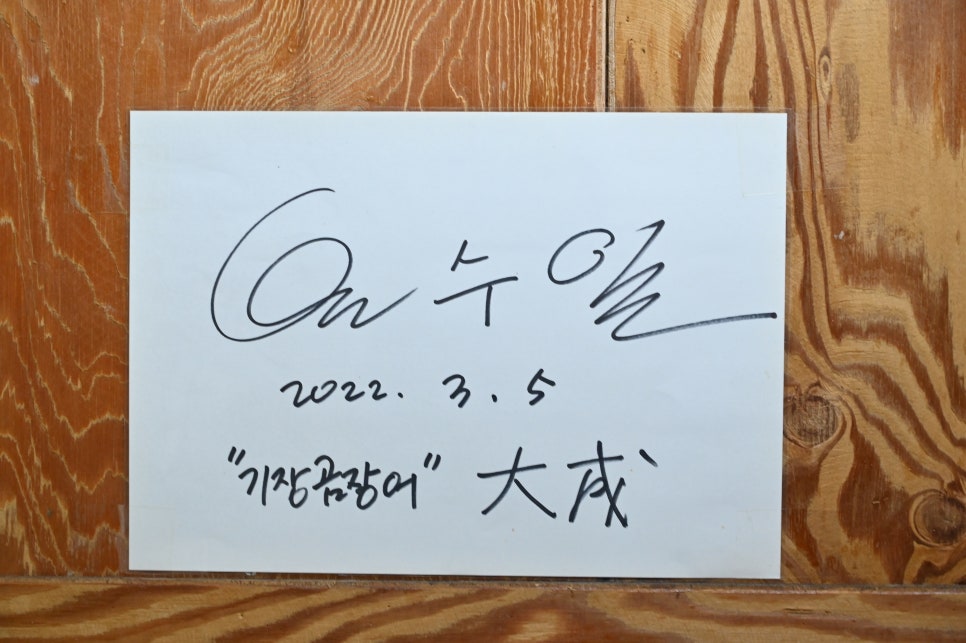 윤수일
2022. 3. 5
"기장곰장어" 大成